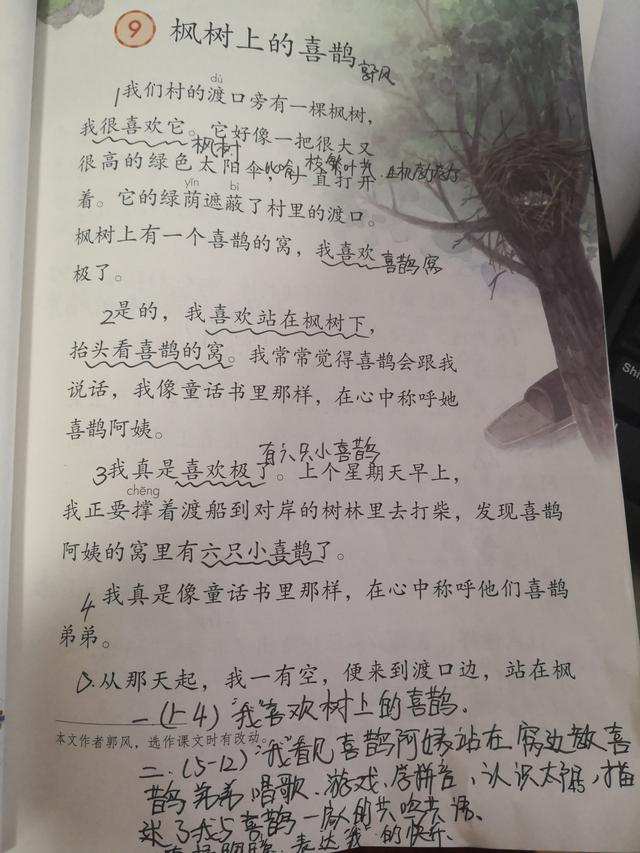 9 枫树上的喜鹊
郭风
dù
1我们村的渡口旁有一棵枫树，
我很喜欢它。它好像一把很大又
枫树
很高的绿色太阳伞，一直打开
比喻 枝繁叶茂
yīn bì
着。它的绿荫遮蔽了村里的渡口。
枫树上有一个喜鹊的窝，我喜欢
喜鹊窝
极了。
2是的，我喜欢站在枫树下，
抬头看喜鹊的窝。我常常觉得喜鹊会跟我
说话，我像童话书里那样，在心中称呼她
喜鹊阿姨。
有六只小喜鹊
3我真是喜欢极了。上个星期天早上，
chēng
我正要撑着渡船到对岸的树林里去打柴，发现喜鹊
阿姨的窝里有六只小喜鹊了。
4我真是像童话书里那样，在心中称呼他们喜鹊
弟弟。
从那天起，我一有空，便来到渡口边，站在枫
一（1-4）“我”喜欢树上的喜鹊。
本文作者郭风，选作课文时有改动。
二.（5-12）“我”看见喜鹊阿姨站在窝边教喜
鹊弟弟唱歌、游戏、学拼音、认识太阳，描
述了我与喜鹊一家人的共鸣共语、
表达“我”的快乐
Shi